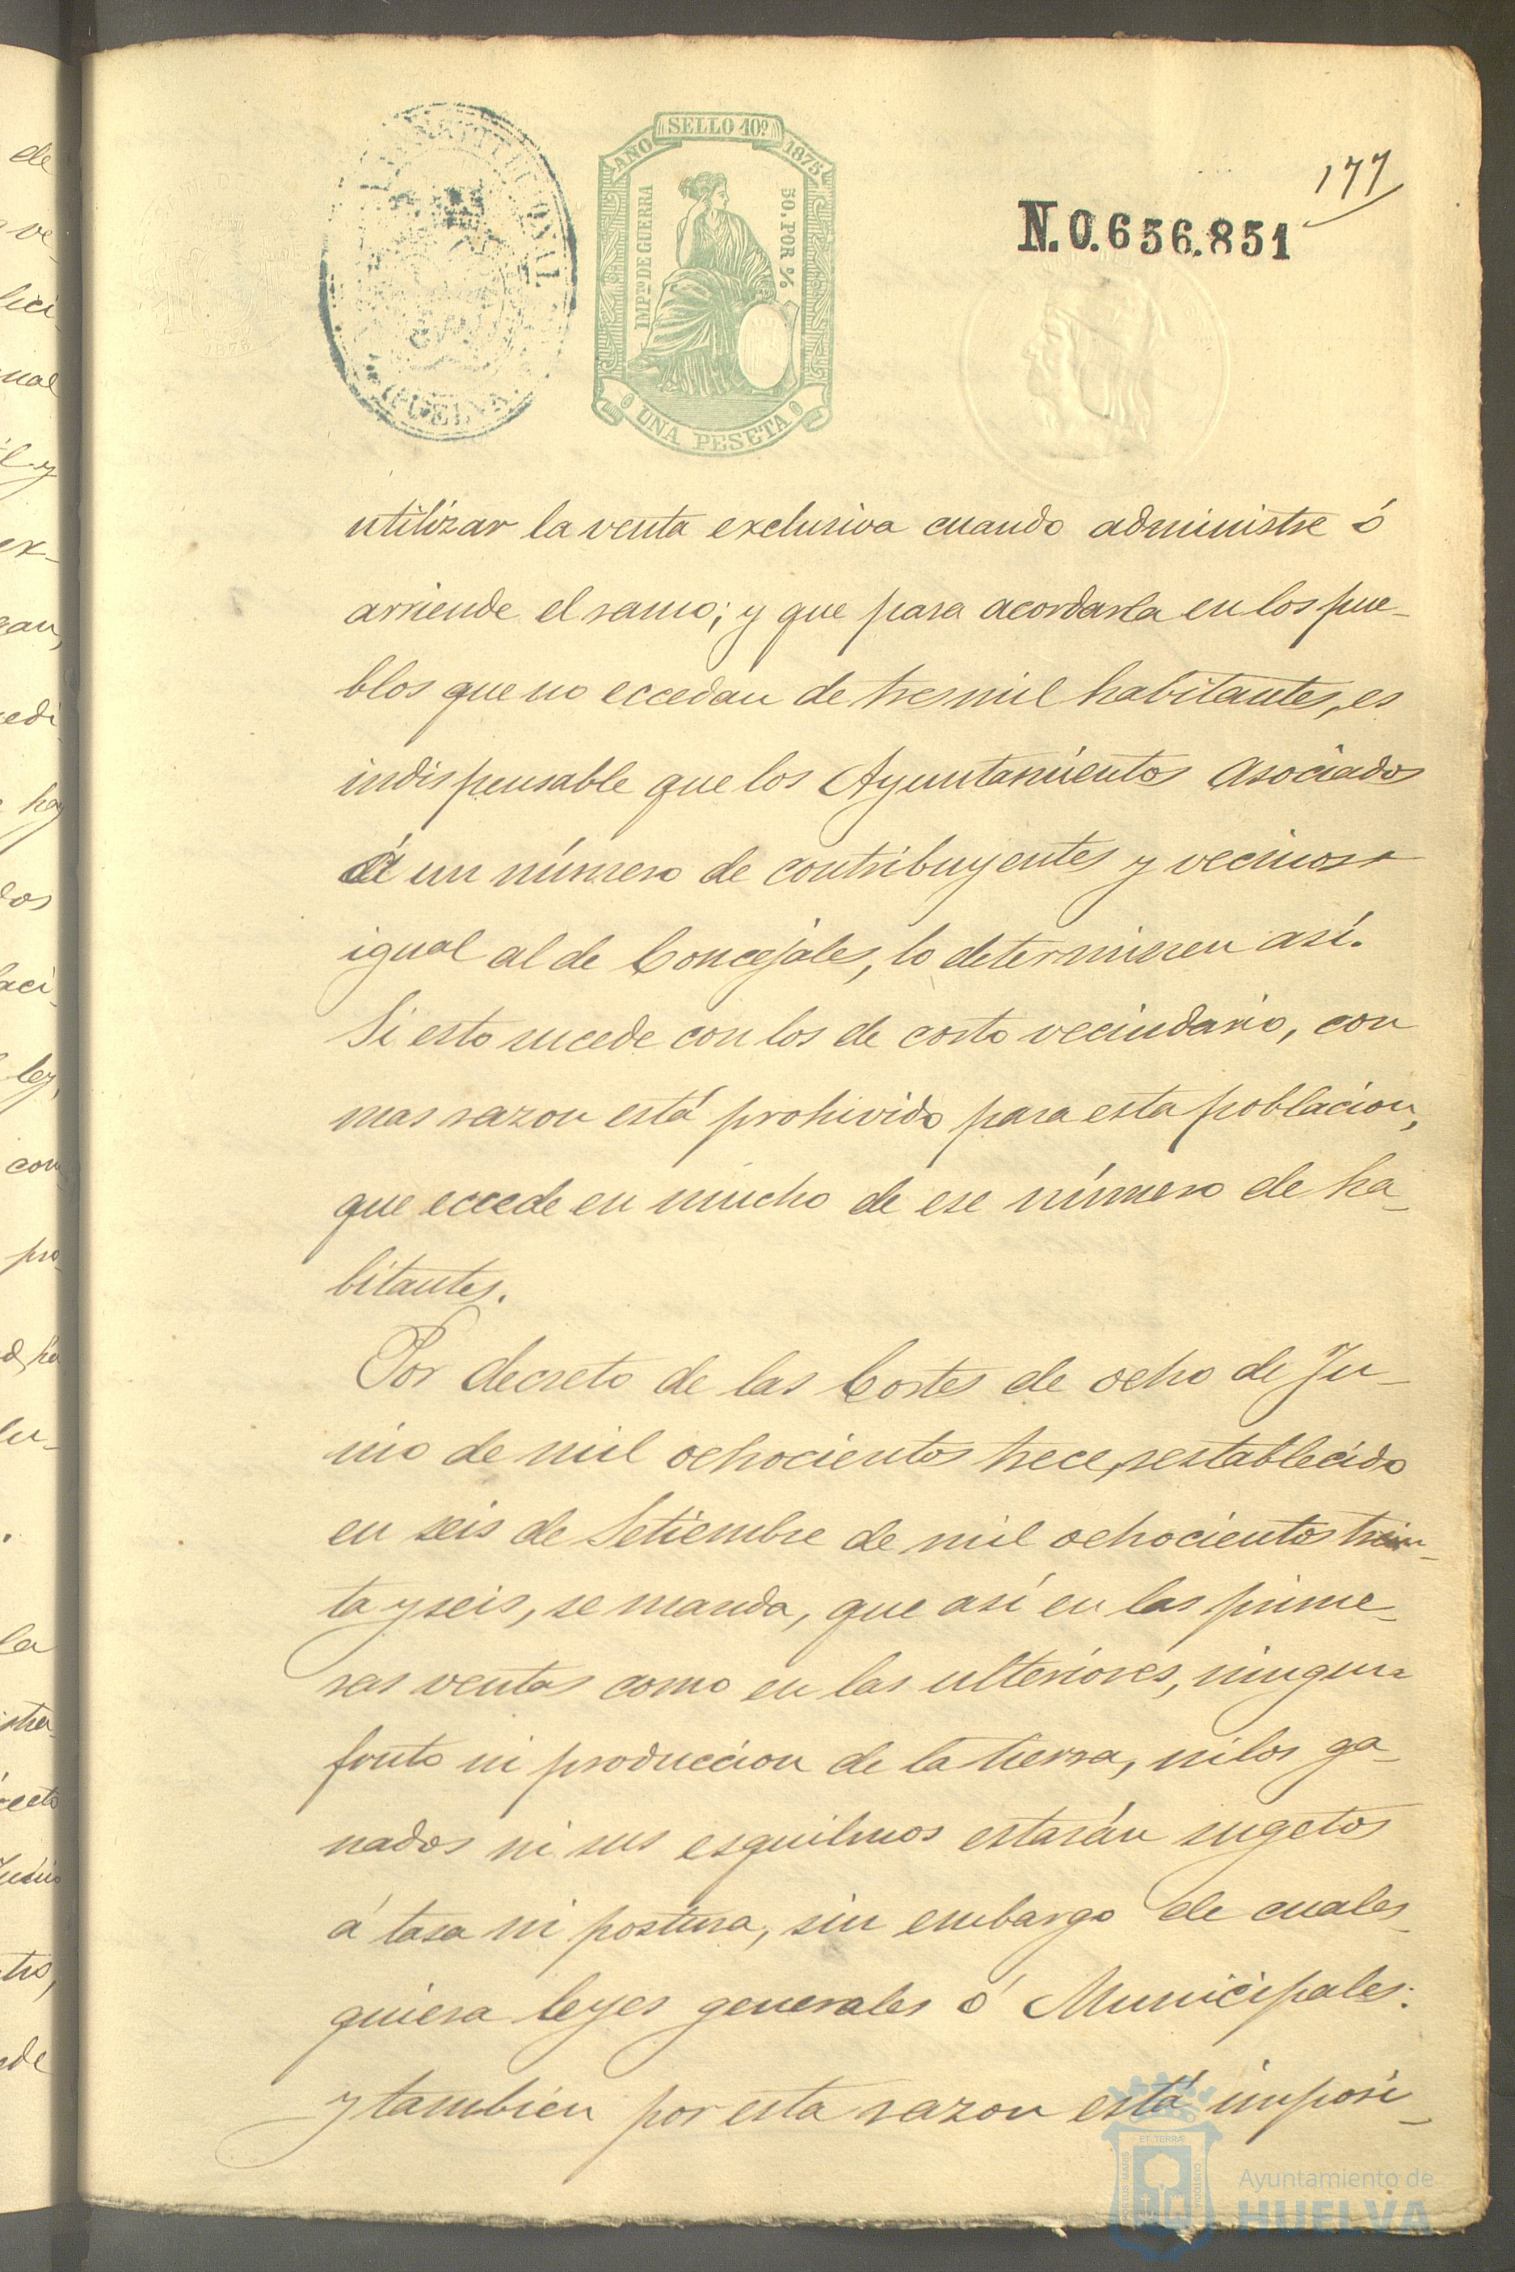 177
N.0.656.851
AÑO SELLO 10º 1875
IMPTO DE GUERRA
50. POR %
UNA PESETA
utilizar la venta exclusiva cuando administre ó
arriende el ramo; y que para acordarla en los pue-
blos que no eccedan de tres mil habitantes, es
indispensable que los Ayuntamientos asociados
á un número de contribuyentes y vecinos
igual al de Concejales, lo determinen así.
Si esto sucede con los de corto vecindario, con
mas razon está prohivido para esta poblacion,
que eccede en mucho de ese número de ha-
bitantes.
Por decreto de las Cortes de ocho de Ju-
nio de mil ochocientos trece, restablecido
en seis de Setiembre de mil ochocientos trein-
ta y seis, se manda, que así en las prime-
ras ventas como en las ulteriores, ningun
fruto ni produccion de la tierra, ni los ga-
nados ni sus esquilmos estarán sugetos
á tasa ni postura, sin embargo de cuales-
quiera leyes generales ó Municipales:
y tambien por esta razon está imposi-
Ayuntamiento de
HUELVA